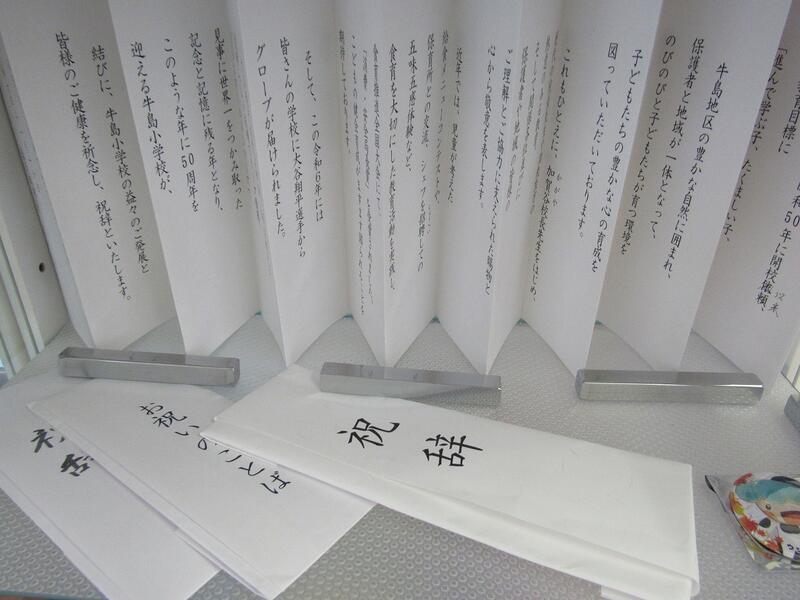 教育目標に
「進んで学ぶ子、たくましい子、
昭和50年に開校依頼、
以来、
牛島地区の豊かな自然に囲まれ、
保護者と地域が一体となって、
のびのびと子どもたちが育つ環境を
子どもたちの豊かな心の育成を
図っていただいております。
これもひとえに、加賀谷校長先生をはじめ、
かがや
保護者、地域の皆様の
ご理解とご協力に支えられた賜物と
心から敬意を表します。
近年では、児童が考えた
給食メニューコンテストや、
保育所との交流、シェフを招聘しての
五味五感体験など、
食育を大切にした教育活動を実践し、
期待しております。
そして、この令和6年には
皆さんの学校に大谷翔平選手から
グローブが届けられました。
見事に世界一をつかみ取った
記念と記憶に残る年となり、
このような年に50周年を
迎える牛島小学校が、
結びに、牛島小学校の益々のご発展と
皆様のご健康を祈念し、祝辞といたします。
お祝いのことば
祝辞